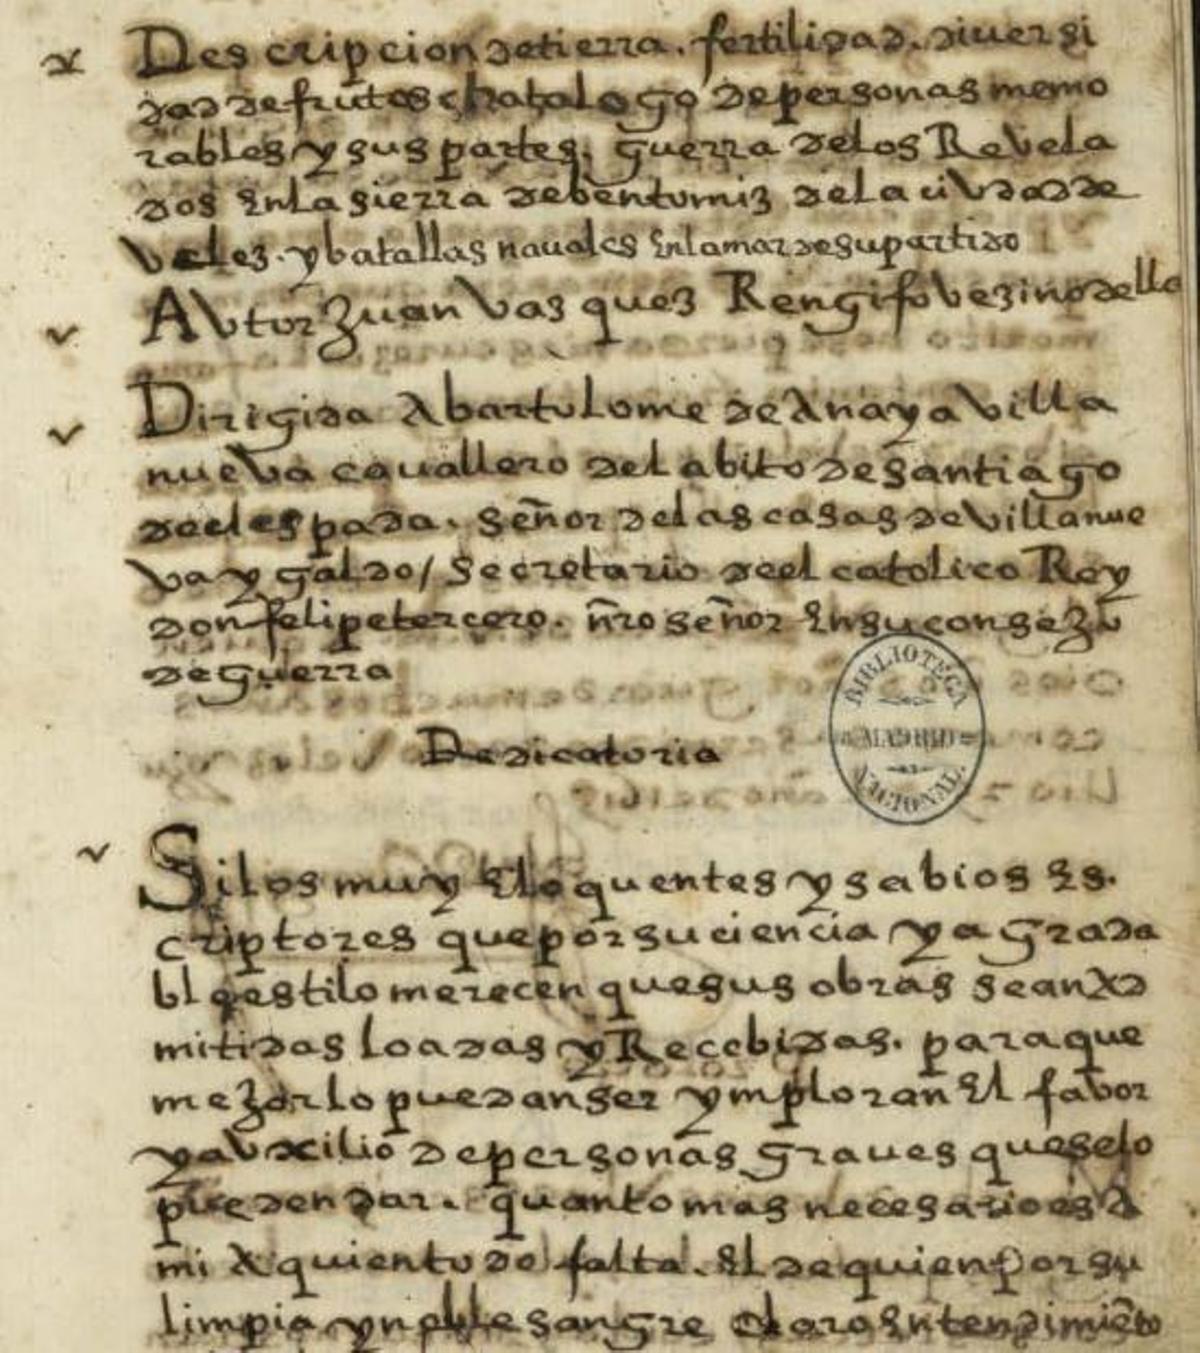 Descripcion de tierra. fertilidad. diversi
dad de frutos chatalogo de personas memo
rables y sus partes. guerra de los Revela
dos En la sierra de bentomiz de la ciudad de
Velez. y batallas navales En la mar de su partido
AVtor Juan Vasquez Rengifo vezino della
Dirigida A bartolome de Anaya villa
nueva cavallero del abito de santiago
de el espada. señor de las casas de villanue
va y galdo / secretario de el catolico Rey
don felipe tercero. nr̃o señor En su consejo
de guerra
Dedicatoria
BIBLIOTECA
MADRID
NACIONAL.
Si los muy Eloquentes y sabios Es.
criptores que por su ciencia y agrada
ble estilo merecen que sus obras sean Ad
mitidas loadas y Recebidas. para que
mejor lo puedan ser ymploran El favor
y aVxilio de personas graves que se lo
pueden dar. quanto mas necesario es A
mi A quien todo falta. El de quien por su
limpia y noble sangre claro Entendimiẽto